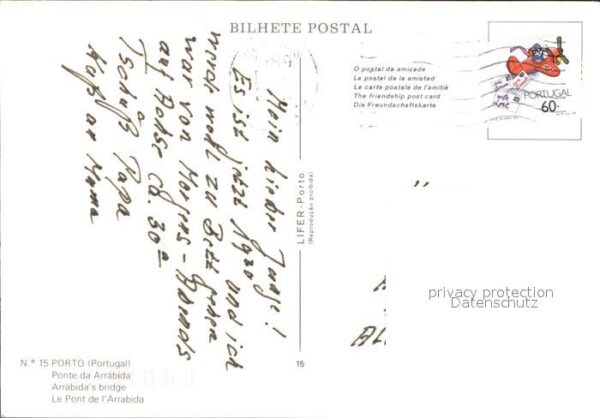 BILHETE POSTAL
O postal da amizade
La postal de la amistad
La carte postale de l'amitié
The friendship post card
Die Freundschaftskarte
PORTUGAL
60.
Mein lieber Junge!
Es ist jetzt 1930 und ich
wohl zu Bett gehen
war von Morgens - Abends
auf Achse ca. 30°
Tschüß Papa
Mama
LIFER-Porto
(Reprodução proibida)
privacy protection
Datenschutz
N.º 15 PORTO (Portugal)
Ponte da Arrábida
Arrabida's bridge
Le Pont de l'Arrabida
15